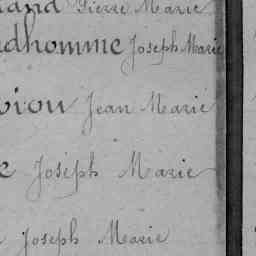 rand Pierre Marie
dhomme Joseph Marie
Jean Marie
e Joseph Marie
Joseph Marie